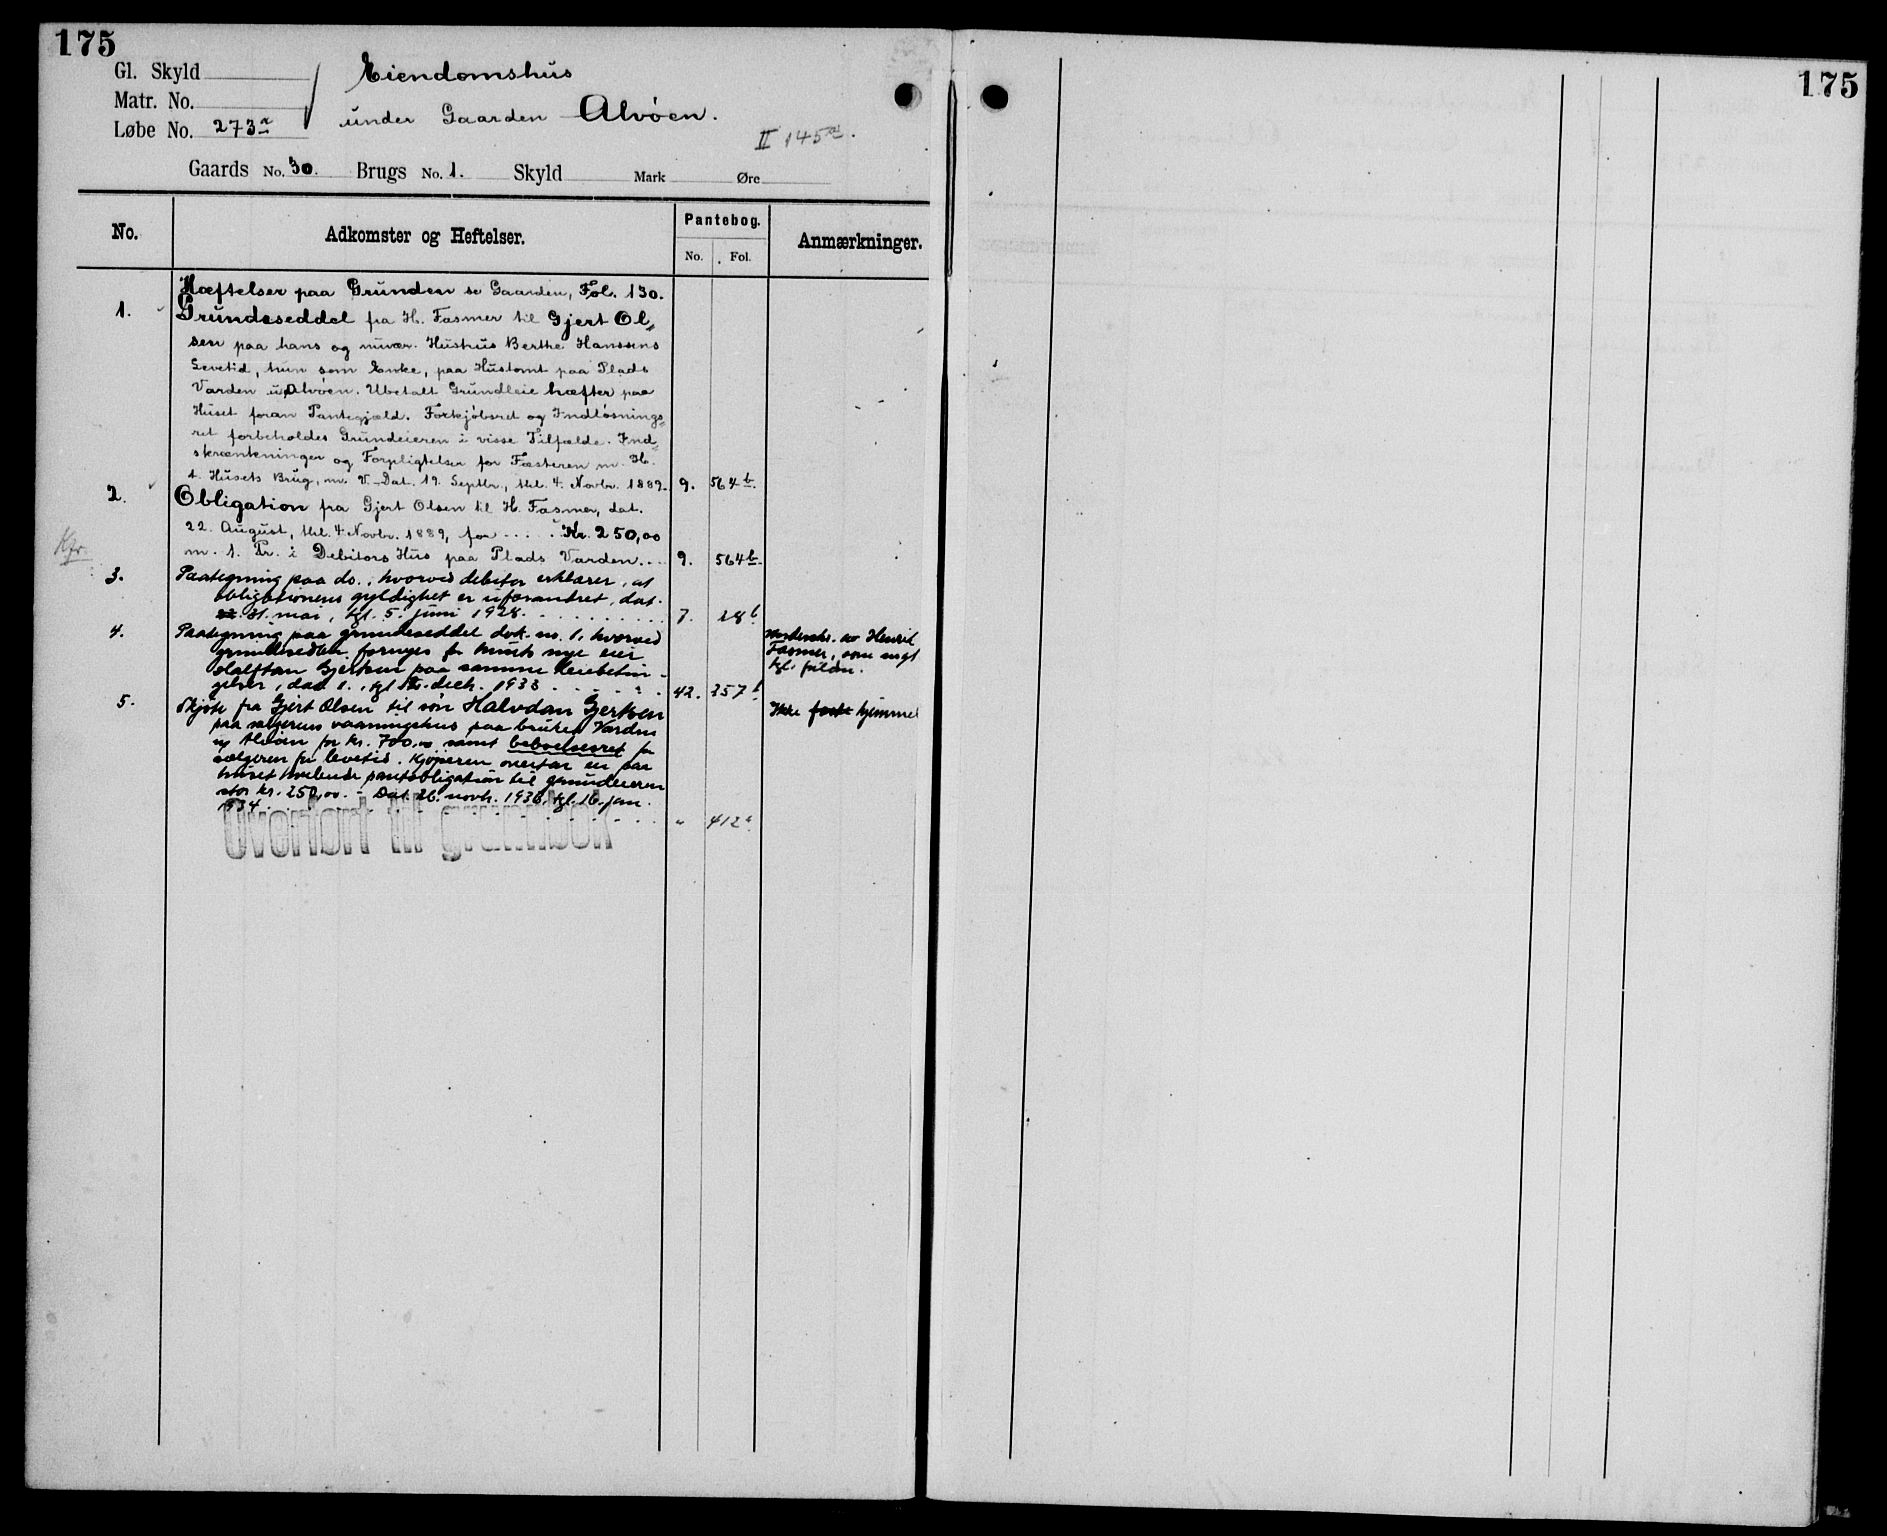 175
Gl. Skyld
Matr. No.
Løbe No. 273a
Eiendomshus
under Gaarden Alvöen.
II 145a.
Gaards No. 30. Brugs No. 1. Skyld Mark Øre
No. Adkomster og Heftelser. Pantebog. No. Fol. Anmærkninger.
Hæftelser paa Grunden se Gaarden, Fol. 130.
1. Grundeseddel fra H. Fasmer til Gjert Ol„
sen paa hans og nuvær. Hustrus Berthe Hanssens
Levetid, hun som Enke, paa Hustomt paa Plads
Varden u/Alvöen. Ubetalt Grundleie hæfter paa
Huset foran Pantegjæld. Forkjöbsret og Indlösnings„
ret forbeholdes Grundeieren i visse Tilfælde. Ind„
skrænkninger og Forpligtelser for Fæsteren m. H.
t. Husets Brug, m. V. Dat. 19. Septbr., thl. 4. Novbr. 1889. 9. 564b.
2. Obligation fra Gjert Olsen til H. Fasmer, dat.
22. August, thl. 4 Novbr. 1889, for . . . . . Kr. 250,00
Kfr. m. 1. Pr. i Debitors Hus paa Plads Varden. . . . 9. 564b.
3. Paategning paa do., hvorved debitor erklærer, at
obligationens gyldighet er uforandret, dat.
31. mai, tgl. 5. juni 1928. . . . . . . . . . . 7. 28b
4. Paategning paa grundeseddel dok. no. 1, hvorved
grundsedlen fornyes for husets nye eier
Halfdan Gjertsen paa samme leiebetin-
gelser, dat 1., tgl. decb. 1933 . . . . . . . 42. 357b
Henrik
Fasmer, som
tgl.
5. Skjöte fra Gjert Olsen til sön Halvdan Gjertsen
paa sælgerens vaaningshus paa bruket Varden
u/ Alvöen for kr. 700,00 samt beboelsesret for
sælgeren for levetid. Kjöperen overtar en paa
huset hvilende pantobligation til grundeieren
stor kr. 250,00. - Dat. 26. novb. 1930, tgl. 16. jan.
1934. . . . . . . . . . . . . " 412a
Ikke hjemmel
Overført til grunnbok
175